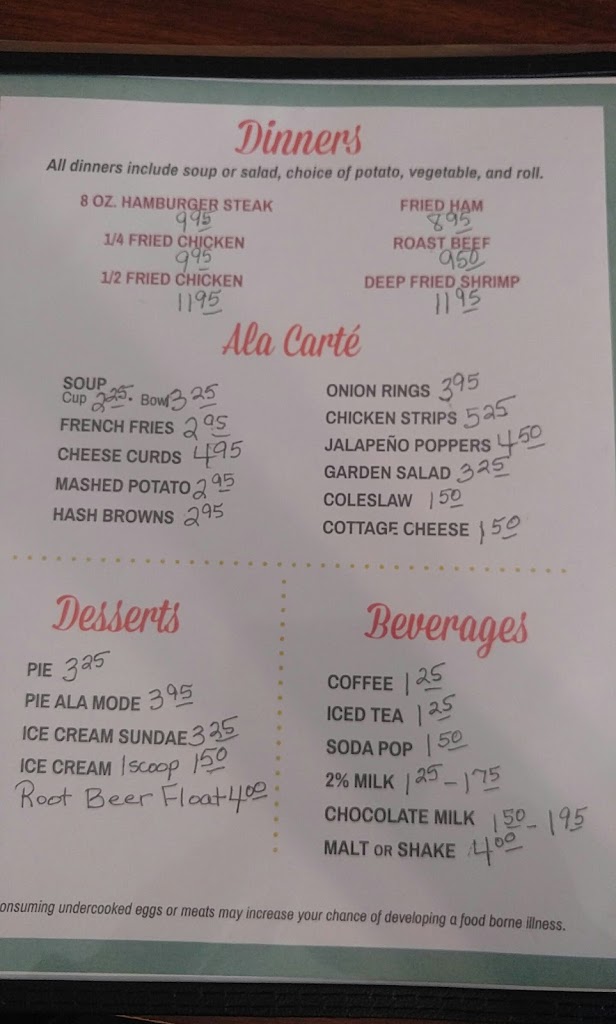 Dinners
All dinners include soup or salad, choice of potato, vegetable, and roll.
8 OZ. HAMBURGER STEAK
9 95
1/4 FRIED CHICKEN
9 95
1/2 FRIED CHICKEN
11 95
FRIED HAM
8 95
ROAST BEEF
9 50
DEEP FRIED SHRIMP
11 95
Ala Carté
SOUP
Cup 2 25. Bowl 3 25
FRENCH FRIES 2 95
CHEESE CURDS 4 95
MASHED POTATO 2 95
HASH BROWNS 2 95
ONION RINGS 3 95
CHICKEN STRIPS 5 25
JALAPEÑO POPPERS 4 50
GARDEN SALAD 3 25
COLESLAW 1 50
COTTAGE CHEESE 1 50
Desserts
PIE 3 25
PIE ALA MODE 3 95
ICE CREAM SUNDAE 3 25
ICE CREAM 1 scoop 1 50
Root Beer Float 4 00
Beverages
COFFEE 1 25
ICED TEA 1 25
SODA POP 1 50
2% MILK 1 25 - 1 75
CHOCOLATE MILK 1 50 - 1 95
MALT OR SHAKE 4 00
onsuming undercooked eggs or meats may increase your chance of developing a food borne illness.